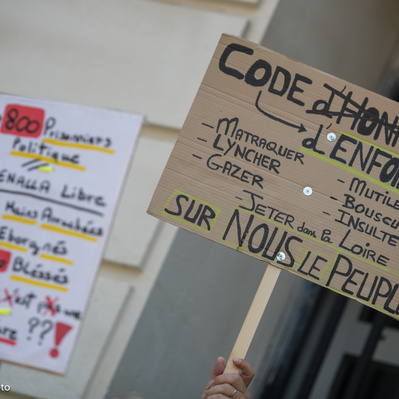 800 Prisonniers
Politique
Libre
Mains Arrachées
Eborgnés
Bléssés
??!
CODE
d'ENFO
- MATRAQUER
- LYNCHER
- GAZER
- MUTILE
- BOUSCU
- INSULTE
- JETER dans la LOIRE
SUR NOUS LE PEUPLE
to